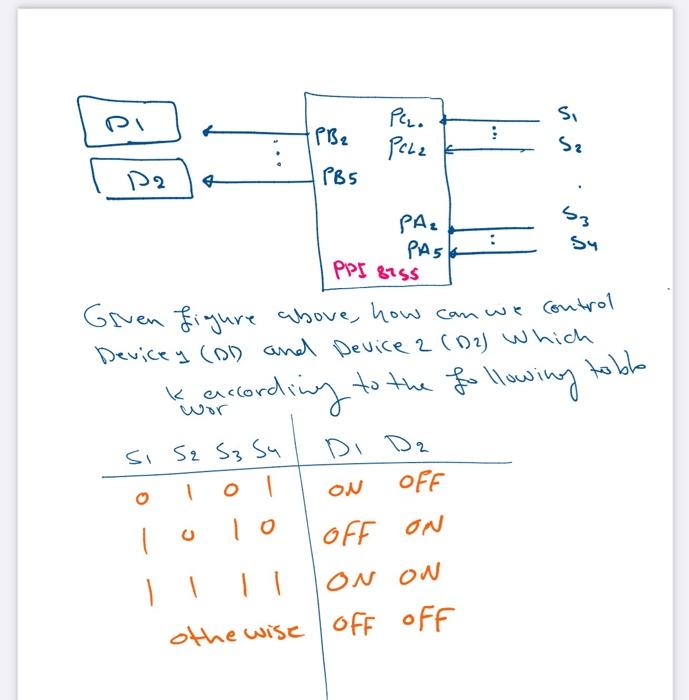 D1
PB2
PCL0
S1
PCL2
S2
D2
PB5
PA2
S3
PA5
S4
PPI 8255
Given figure above, how can we control
Device 1 (D1) and Device 2 (D2) which
work according to the following table
S1 S2 S3 S4 D1 D2
0 1 0 1 ON OFF
1 0 1 0 OFF ON
1 1 1 1 ON ON
othewise OFF OFF